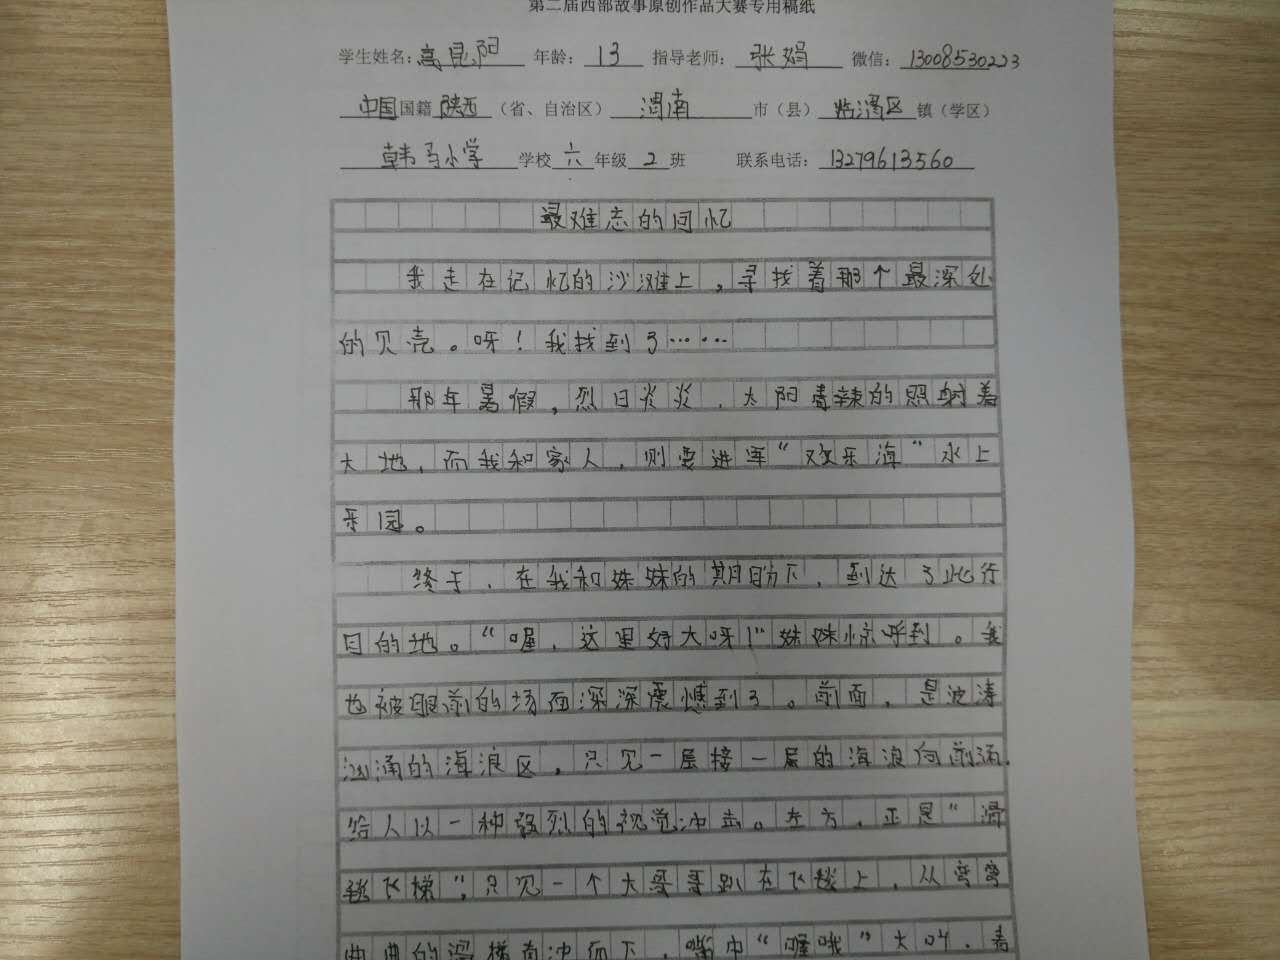 第二届西部故事原创作品大赛专用稿纸
学生姓名：高昆阳 年龄：13 指导老师：张娟 微信：13008530223
中国国籍 陕西（省、自治区） 渭南 市（县） 临渭区 镇（学区）
韩马小学 学校 六 年级 2 班 联系电话：13279613560
最难忘的回忆
我走在记忆的沙滩上，寻找着那个最深处
的贝壳。呀！我找到了……
那年暑假，烈日炎炎，太阳毒辣的照射着
大地，而我和家人，则要进军“欢乐海”水上
乐园。
终于，在我和妹妹的期盼下，到达了此行
目的地。“喔，这里好大呀！”妹妹惊呼到。我
也被眼前的场面深深震憾到了。前面，是波涛
汹涌的海浪区，只见一层接一层的海浪向前涌，
给人以一种强烈的视觉冲击。左方，正是“滑
毯飞梯”，只见一个大哥哥趴在飞毯上，从弯弯
曲曲的滑梯直冲而下，嘴中“喔哦”大叫，着